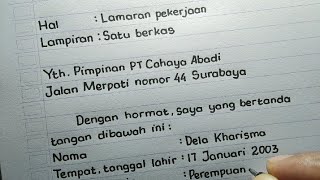 Hal : Lamaran pekerjaan
Lampiran : Satu berkas
Yth. Pimpinan PT Cahaya Abadi
Jalan Merpati nomor 44 Surabaya
Dengan hormat, saya yang bertanda
tangan dibawah ini :
Nama : Dela Kharisma
Tempat, tanggal lahir : 17 Januari 2003
: Perempuan